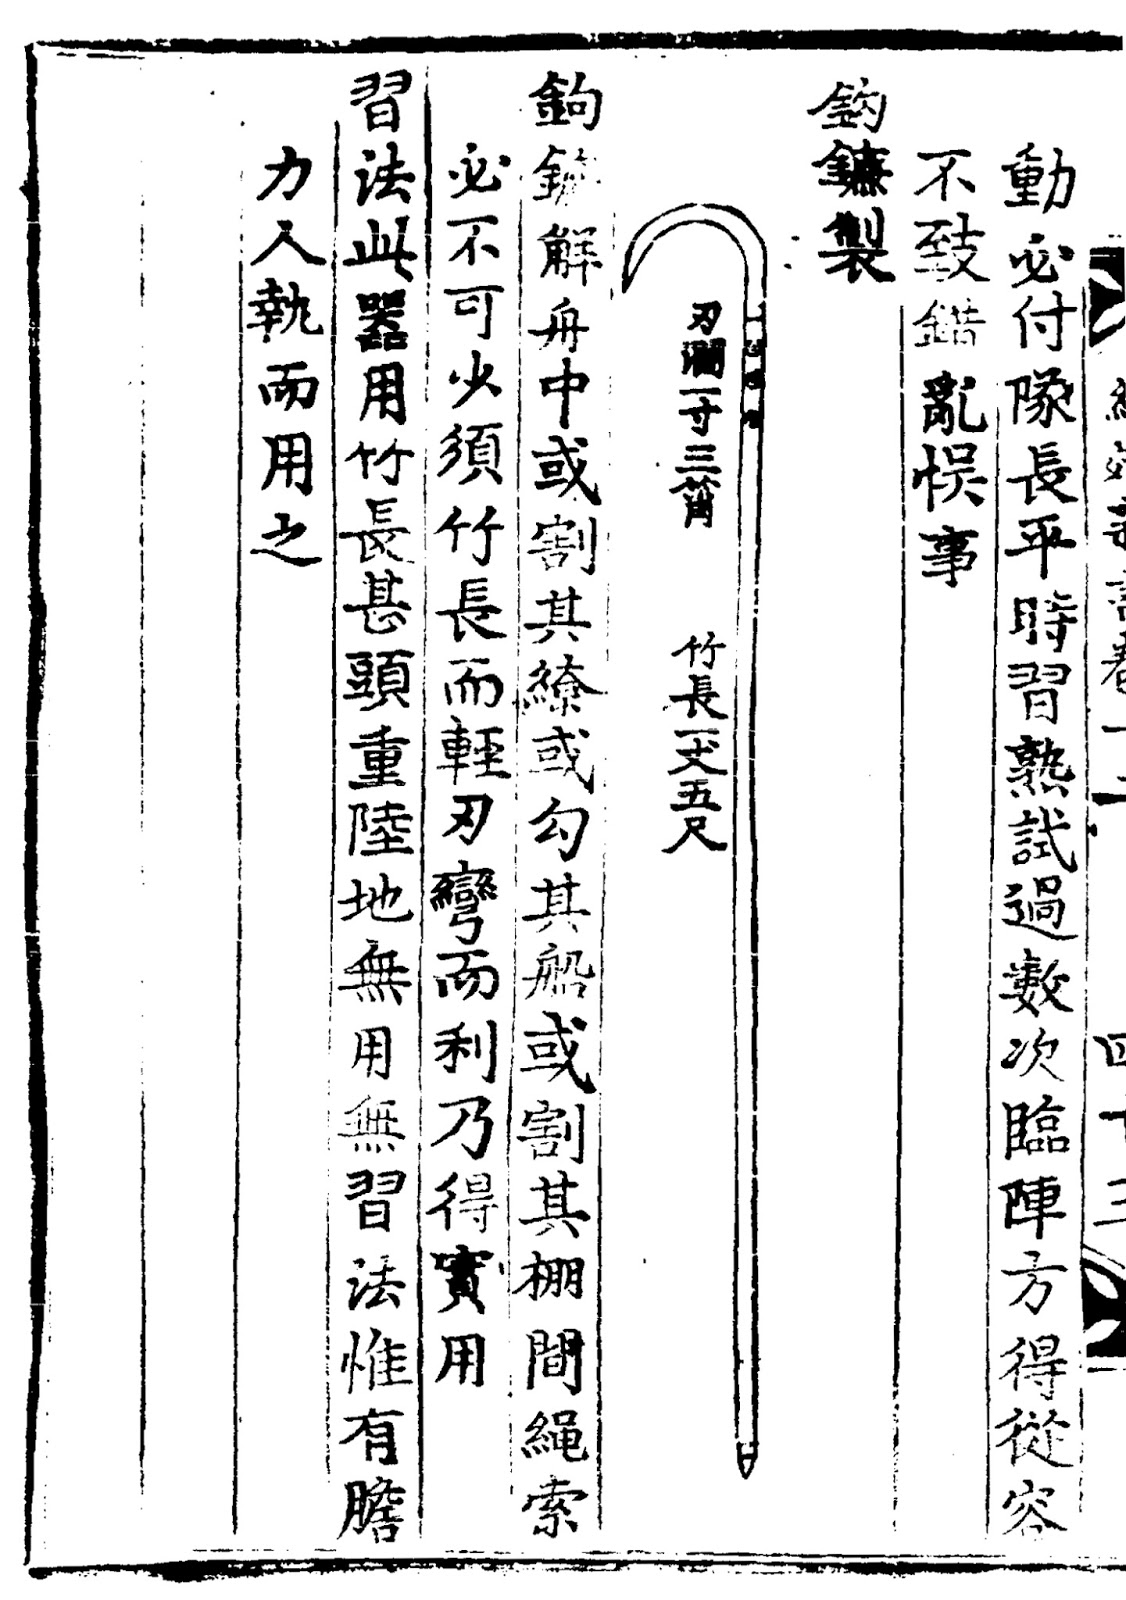 動必付隊長平時習熟試過數次臨陣方得從容
不致錯亂悞事
鈎鐮製
刃濶一寸三箇
竹長一丈五尺
鉤鐮解舟中或割其繚或勾其船或割其棚間繩索
必不可少須竹長而輕刃彎而利乃得實用
習法此器用竹長甚頭重陸地無用無習法惟有膽
力人執而用之